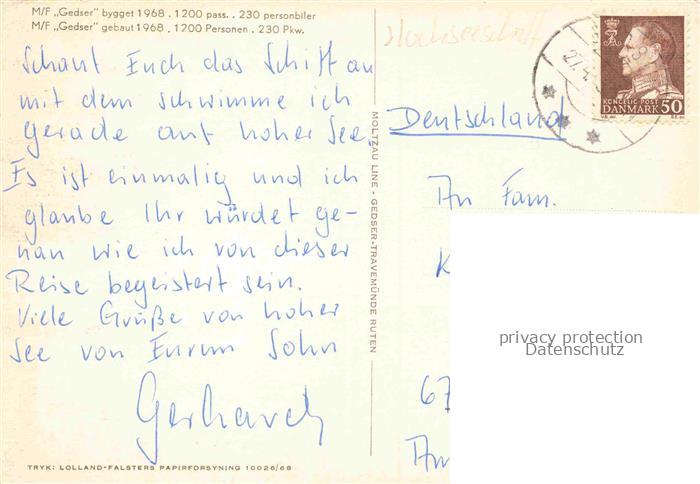 M/F „Gedser” bygget 1968 . 1200 pass. . 230 personbiler
M/F „Gedser” gebaut 1968 . 1200 Personen . 230 Pkw.
Schaut Euch das Schiff an
mit dem schwimme ich
gerade auf hoher See.
Es ist einmalig und ich
glaube Ihr würdet ge-
nau wie ich von dieser
Reise begeistert sein.
Viele Grüße von hoher
See von Eurem Sohn
Gerhard
TRYK: LOLLAND-FALSTERS PAPIRFORSYNING 10026/68
MOLTZAU LINE - GEDSER-TRAVEMÜNDE RUTEN
KONGELIG POST
DANMARK 50
Deutschland
An Fam.
K
67
Am
privacy protection
Datenschutz